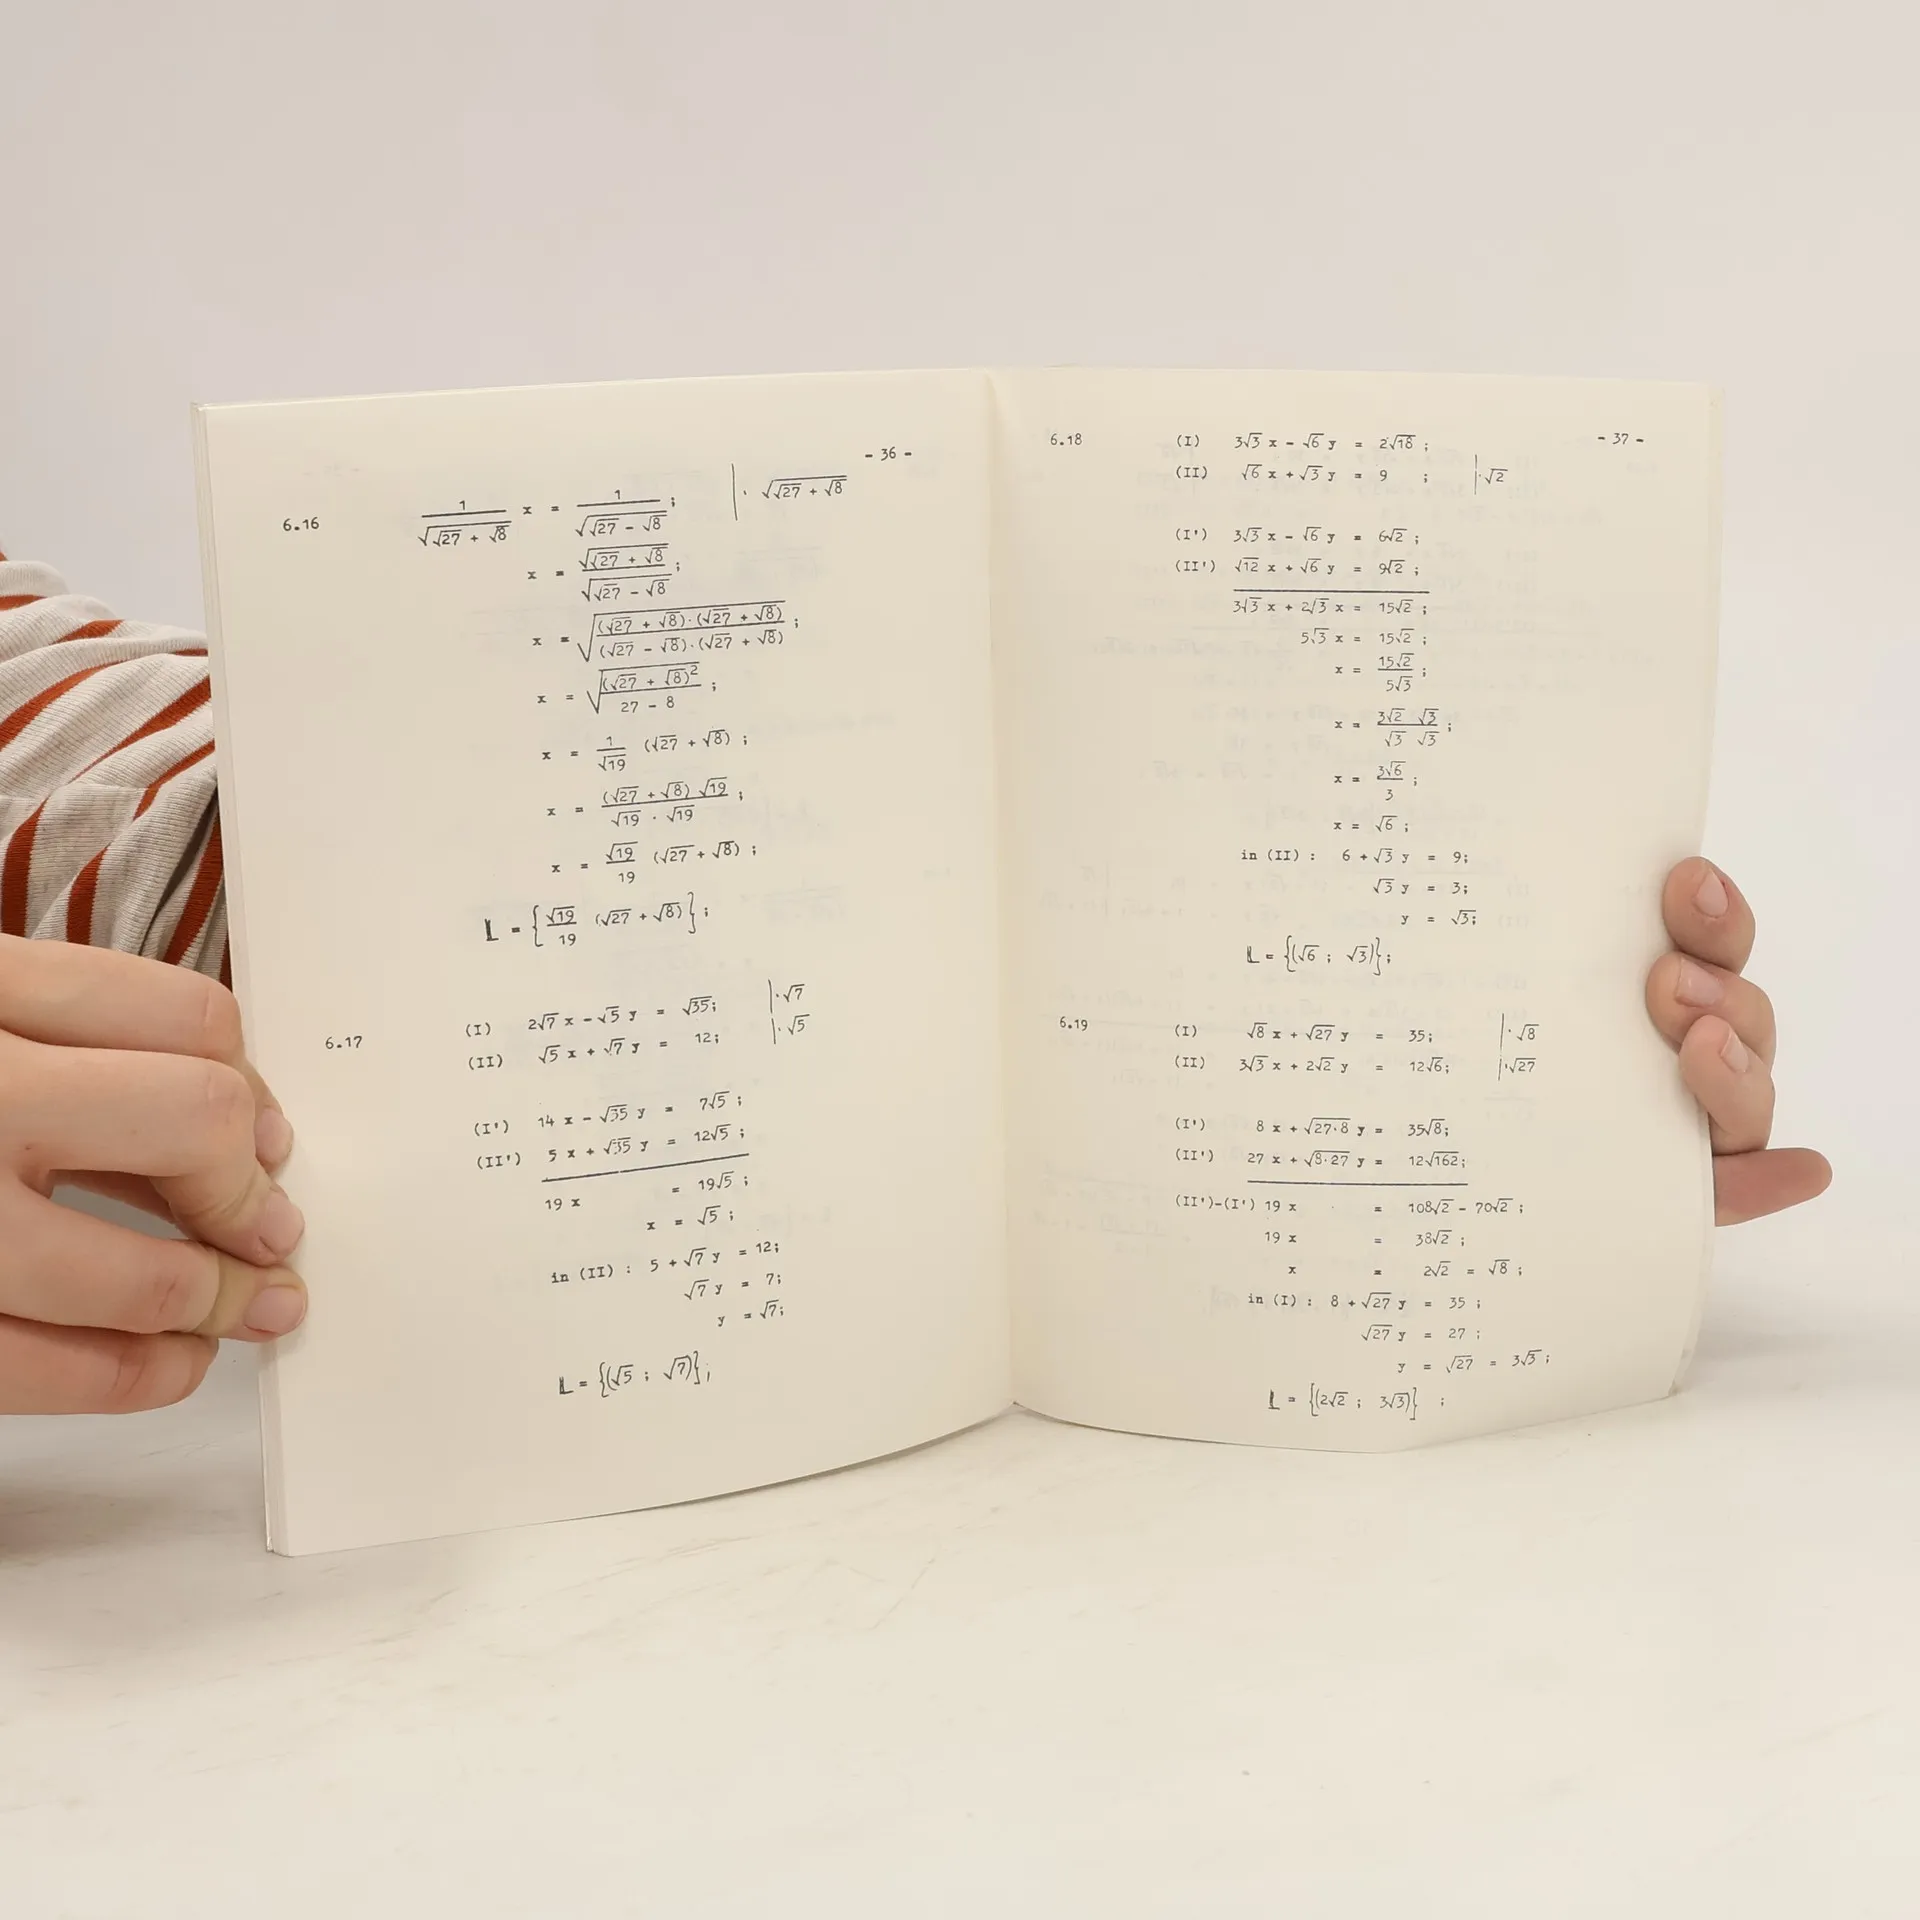 - 36 -
6.16 1/√(√27 + √8) x = 1/√(√27 - √8) ; | · √(√27 + √8)
x = √(√27 + √8)/√(√27 - √8) ;
x = √((√27 + √8)·(√27 + √8)/(√27 - √8)·(√27 + √8)) ;
x = √((√27 + √8)²/27 - 8) ;
x = 1/√19 (√27 + √8) ;
x = (√27 + √8) √19/√19 · √19 ;
x = √19/19 (√27 + √8) ;
L = {√19/19 (√27 + √8)} ;
6.17 (I) 2√7 x - √5 y = √35; | ·√7
(II) √5 x + √7 y = 12; | ·√5
(I') 14 x - √35 y = 7√5 ;
(II') 5 x + √35 y = 12√5 ;
19 x = 19√5 ;
x = √5 ;
in (II) : 5 + √7 y = 12;
√7 y = 7;
y = √7;
L = {(√5 ; √7)};
- 37 -
6.18 (I) 3√3 x - √6 y = 2√18 ;
(II) √6 x + √3 y = 9 ; | ·√2
(I') 3√3 x - √6 y = 6√2 ;
(II') √12 x + √6 y = 9√2 ;
3√3 x + 2√3 x = 15√2 ;
5√3 x = 15√2 ;
x = 15√2/5√3 ;
x = 3√2 √3/√3 √3 ;
x = 3√6/3 ;
x = √6 ;
in (II) : 6 + √3 y = 9;
√3 y = 3;
y = √3;
L = {(√6 ; √3)};
6.19 (I) √8 x + √27 y = 35; | · √8
(II) 3√3 x + 2√2 y = 12√6; | ·√27
(I') 8 x + √27·8 y = 35√8;
(II') 27 x + √8·27 y = 12√162;
(II')-(I') 19 x = 108√2 - 70√2 ;
19 x = 38√2 ;
x = 2√2 = √8 ;
in (I) : 8 + √27 y = 35 ;
√27 y = 27 ;
y = √27 = 3√3 ;
L = {(2√2 ; 3√3)} ;